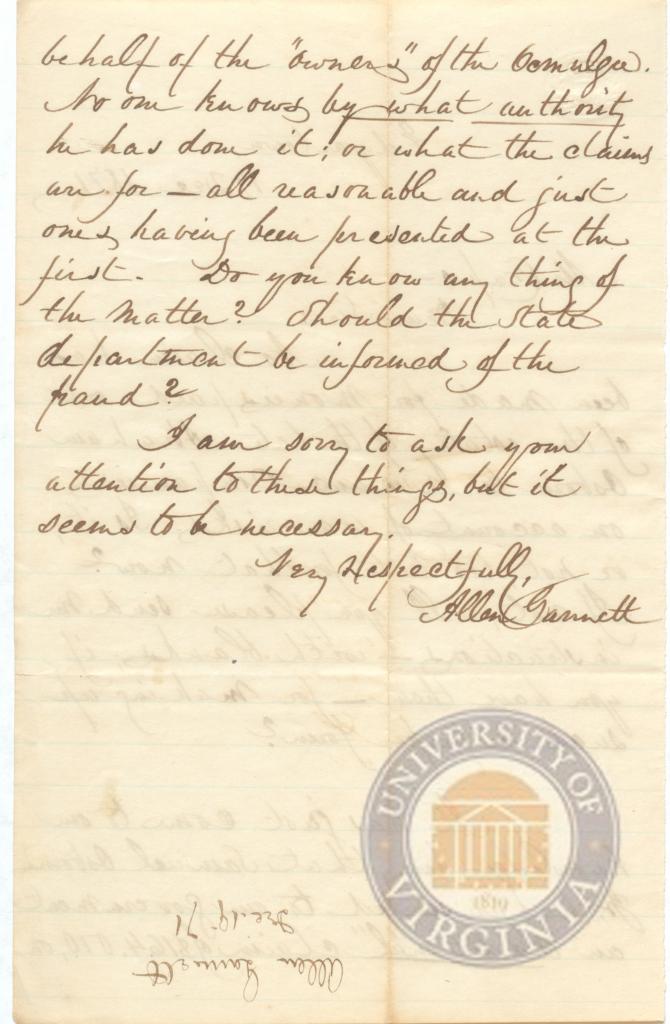 behalf of the "owners" of the Ocmulgee.
No one knows by what authority
he has done it; or what the claims
are for — all reasonable and just
ones having been presented at the
first. Do you know any thing of
the matter? Should the State
department be informed of the
fraud?
I am sorry to ask your
attention to these things, but it
seems to be necessary.
Very respectfully,
Allen Gannett
UNIVERSITY OF
VIRGINIA
1819
Allen Gannett
Dec. 19. 71